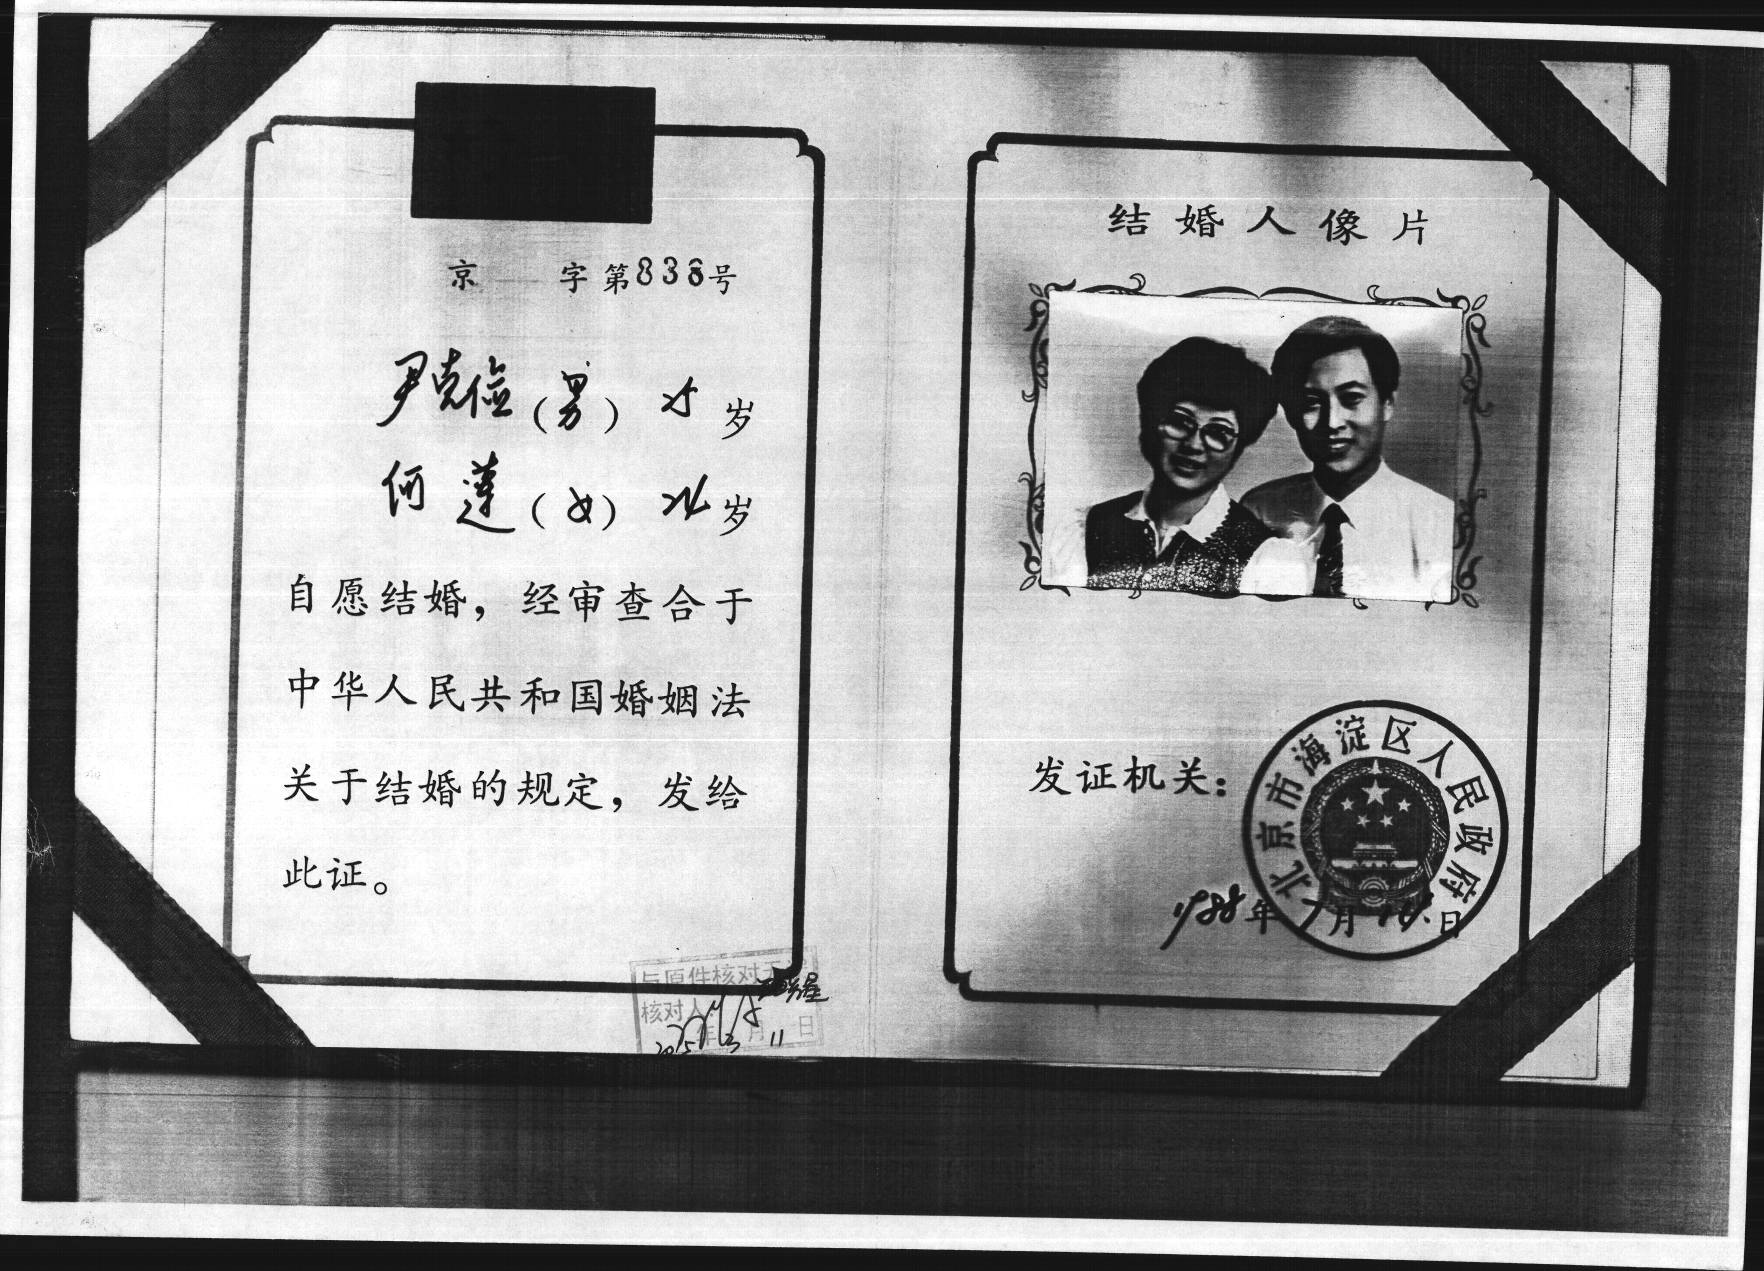 京 字第838号
尹克俭(男) 25岁
何莲(女) 24岁
自愿结婚，经审查合于
中华人民共和国婚姻法
关于结婚的规定，发给
此证。
与原件核对无
核对人
2015年3月11日
结婚人像片
发证机关：
北京市海淀区人民政府
1988年7月 日